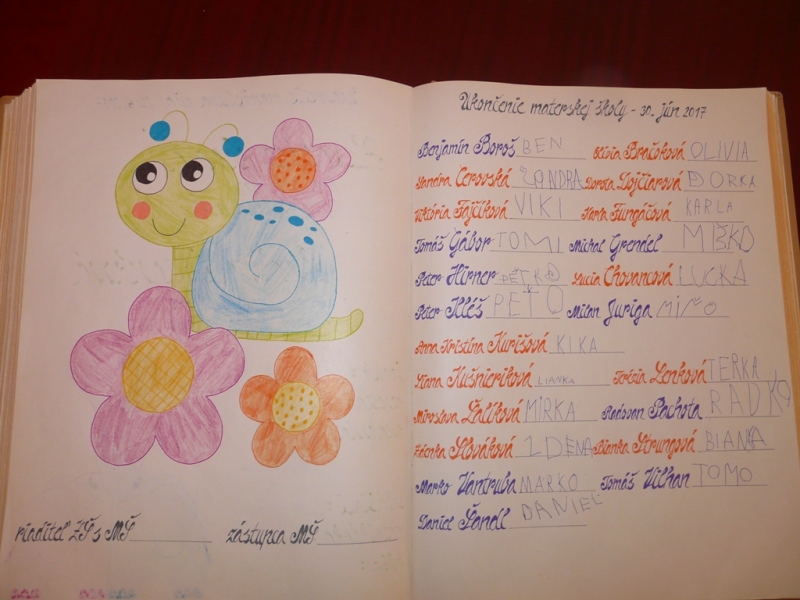 riaditeľ ZŠ s MŠ zástupca MŠ
Ukončenie materskej školy - 30. jún 2017
Benjamín Boroš BEN Olívia Bračoková OLIVIA
Sandra Cerovská SANDRA Dorota Dojčiarová ĎORKA
Viktória Fajčíková VIKI Karla Fungáčová KARLA
Tomáš Gábor TOMI Michal Grendel MIŠKO
Peter Hirner PEŤKO Lucia Chovancová LUCKA
Peter Kléš PEŤO Milan Juriga MIŇO
Anna Kristína Kurišová KIKA
Liana Kušnieriková LIANKA Terézia Lenková TERKA
Miroslava Šalíková MIRKA Radovan Pachota RADKO
Zdenka Slováková ZDENA Bianka Strungová BIANKA
Marko Vantruba MARKO Tomáš Vilhan TOMO
Daniel Šandl DANIEL